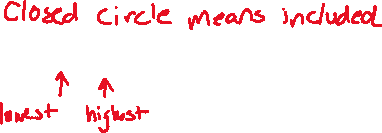 Closed circle means included
lowest highest